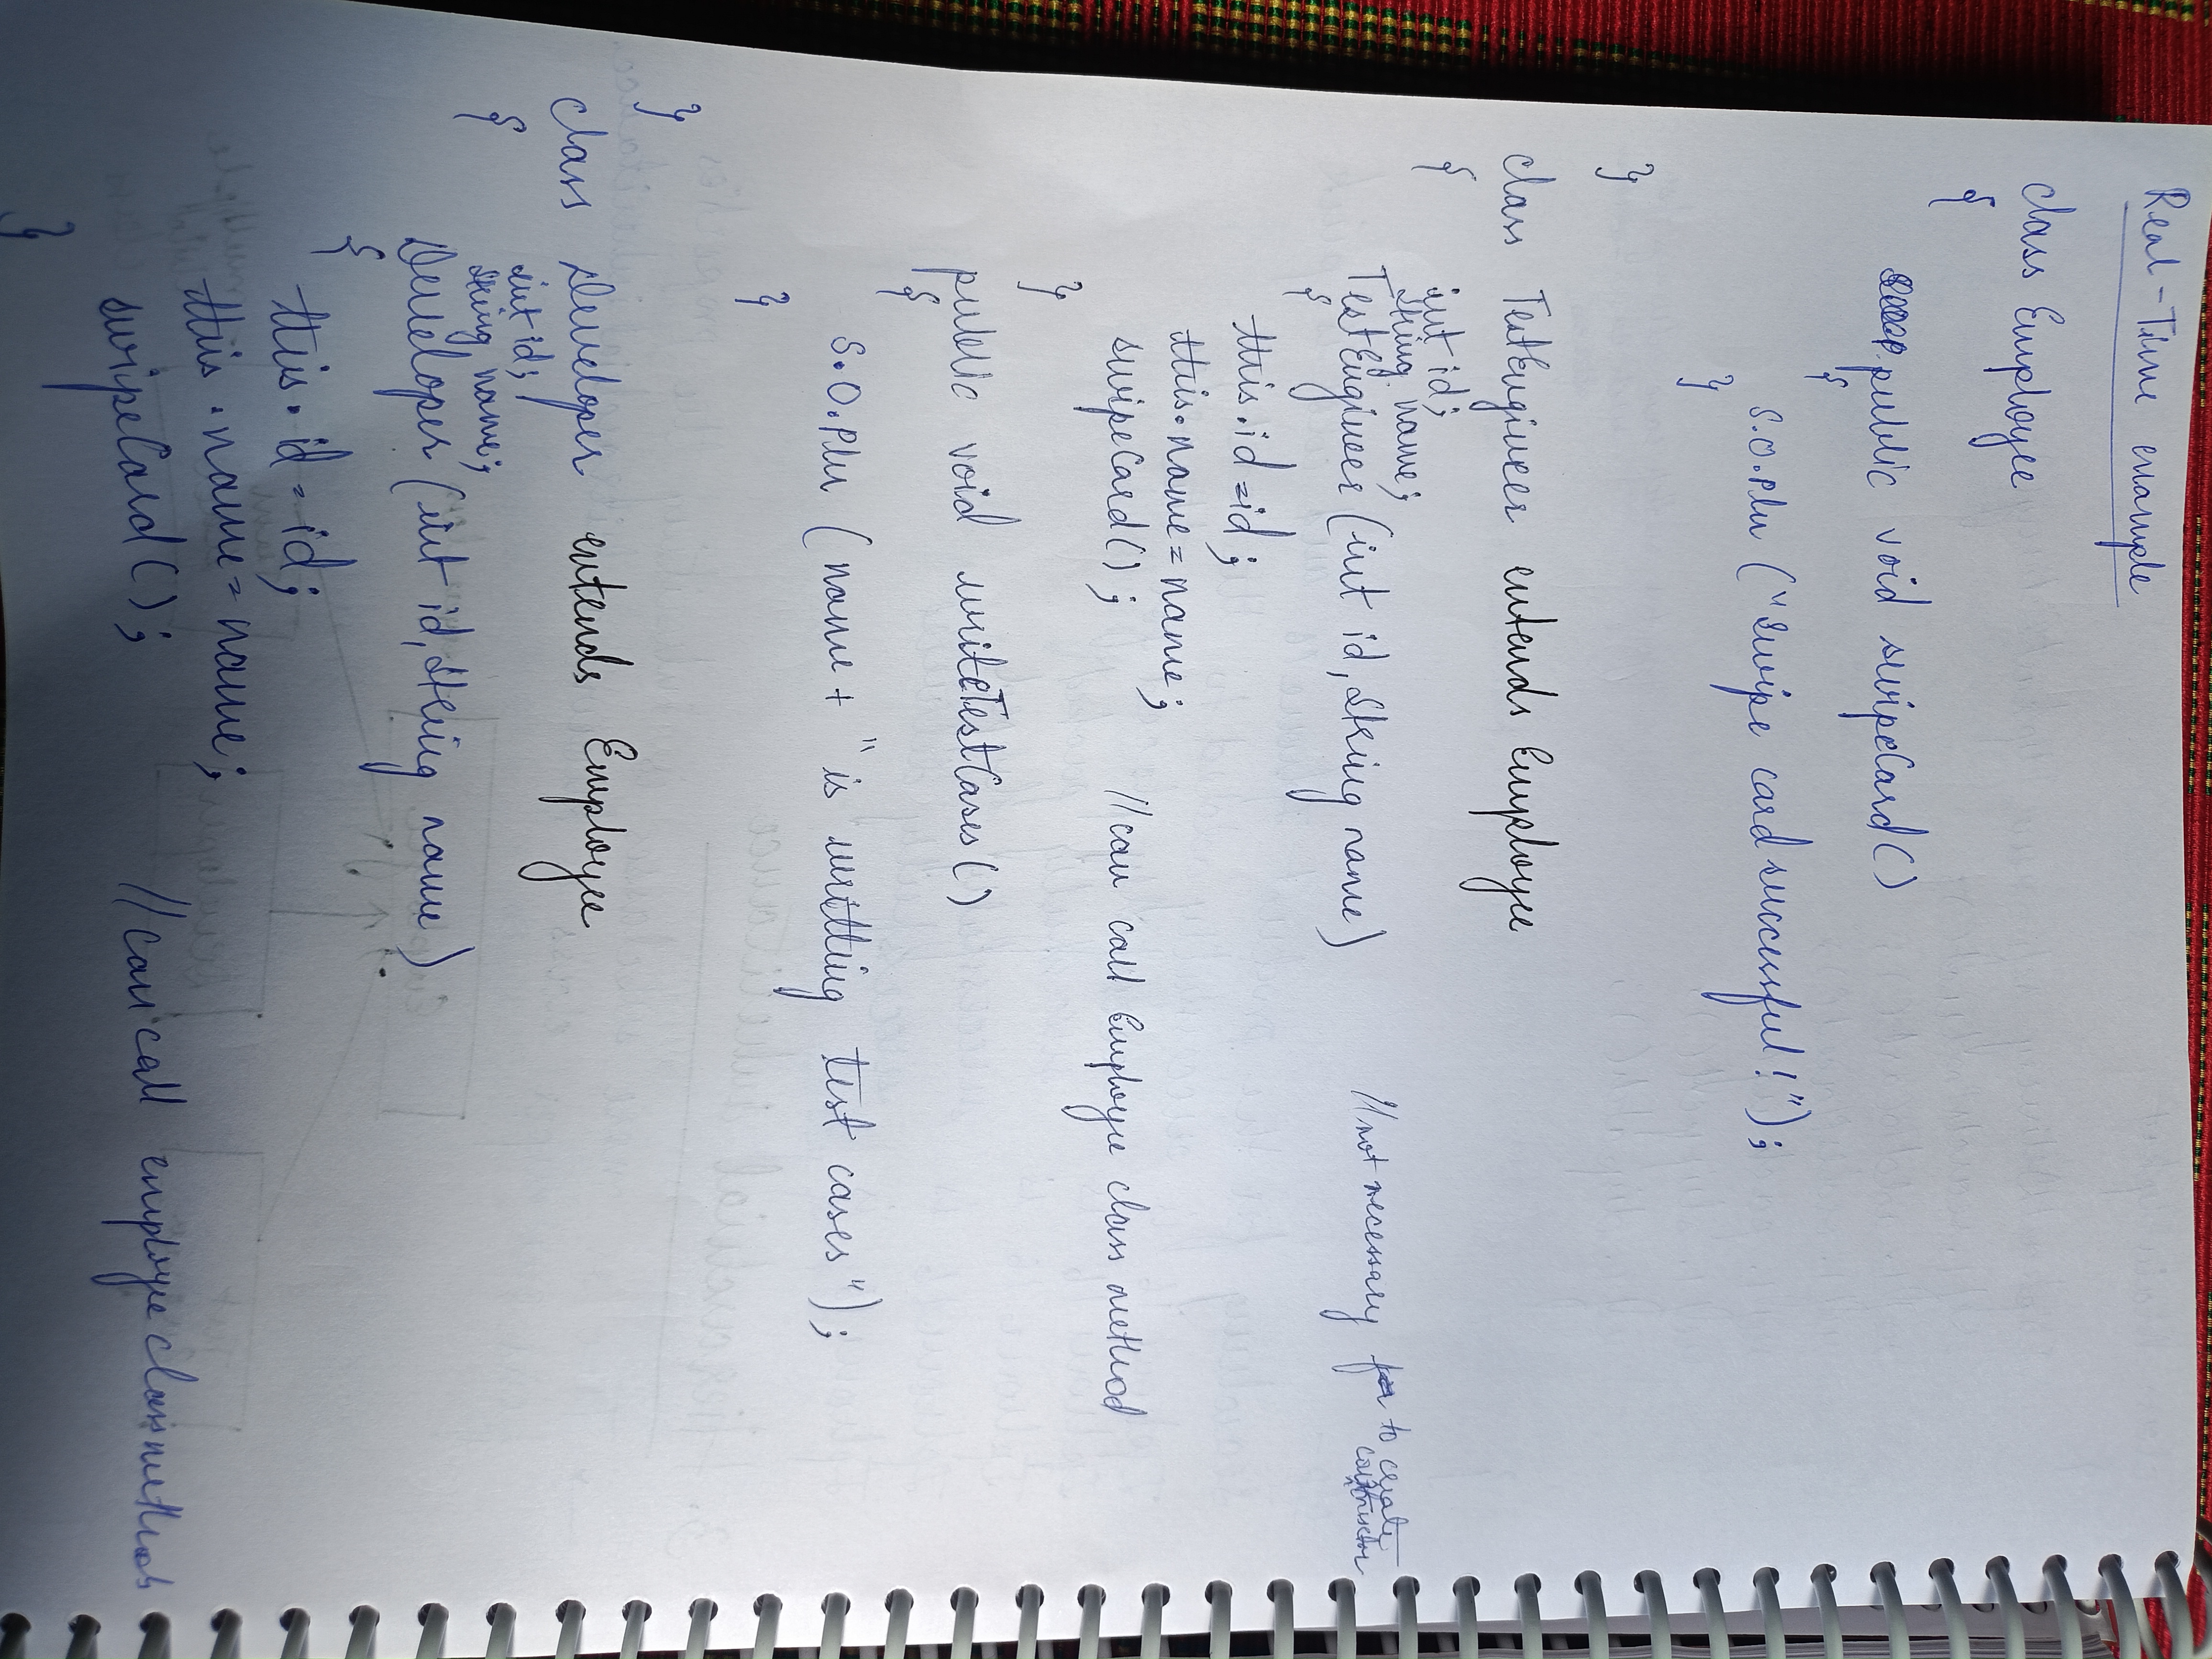 Real-Time example
class Employee
{
public void swipeCard()
{
S.O.Pln ("Swipe card successful!");
}
}
class TestEngineer extends Employee
{
int id;
String name;
TestEngineer (int id, String name) //not necessary to create constructor
{
this.id=id;
this.name=name;
swipeCard(); //can call Employee class method
}
public void writeTestCases()
{
S.O.Pln (name+ " is writting test cases");
}
}
class Developer extends Employee
{
int id;
String name;
Developer (int id, String name)
{
this.id=id;
this.name=name;
swipeCard(); //can call employee class method
}